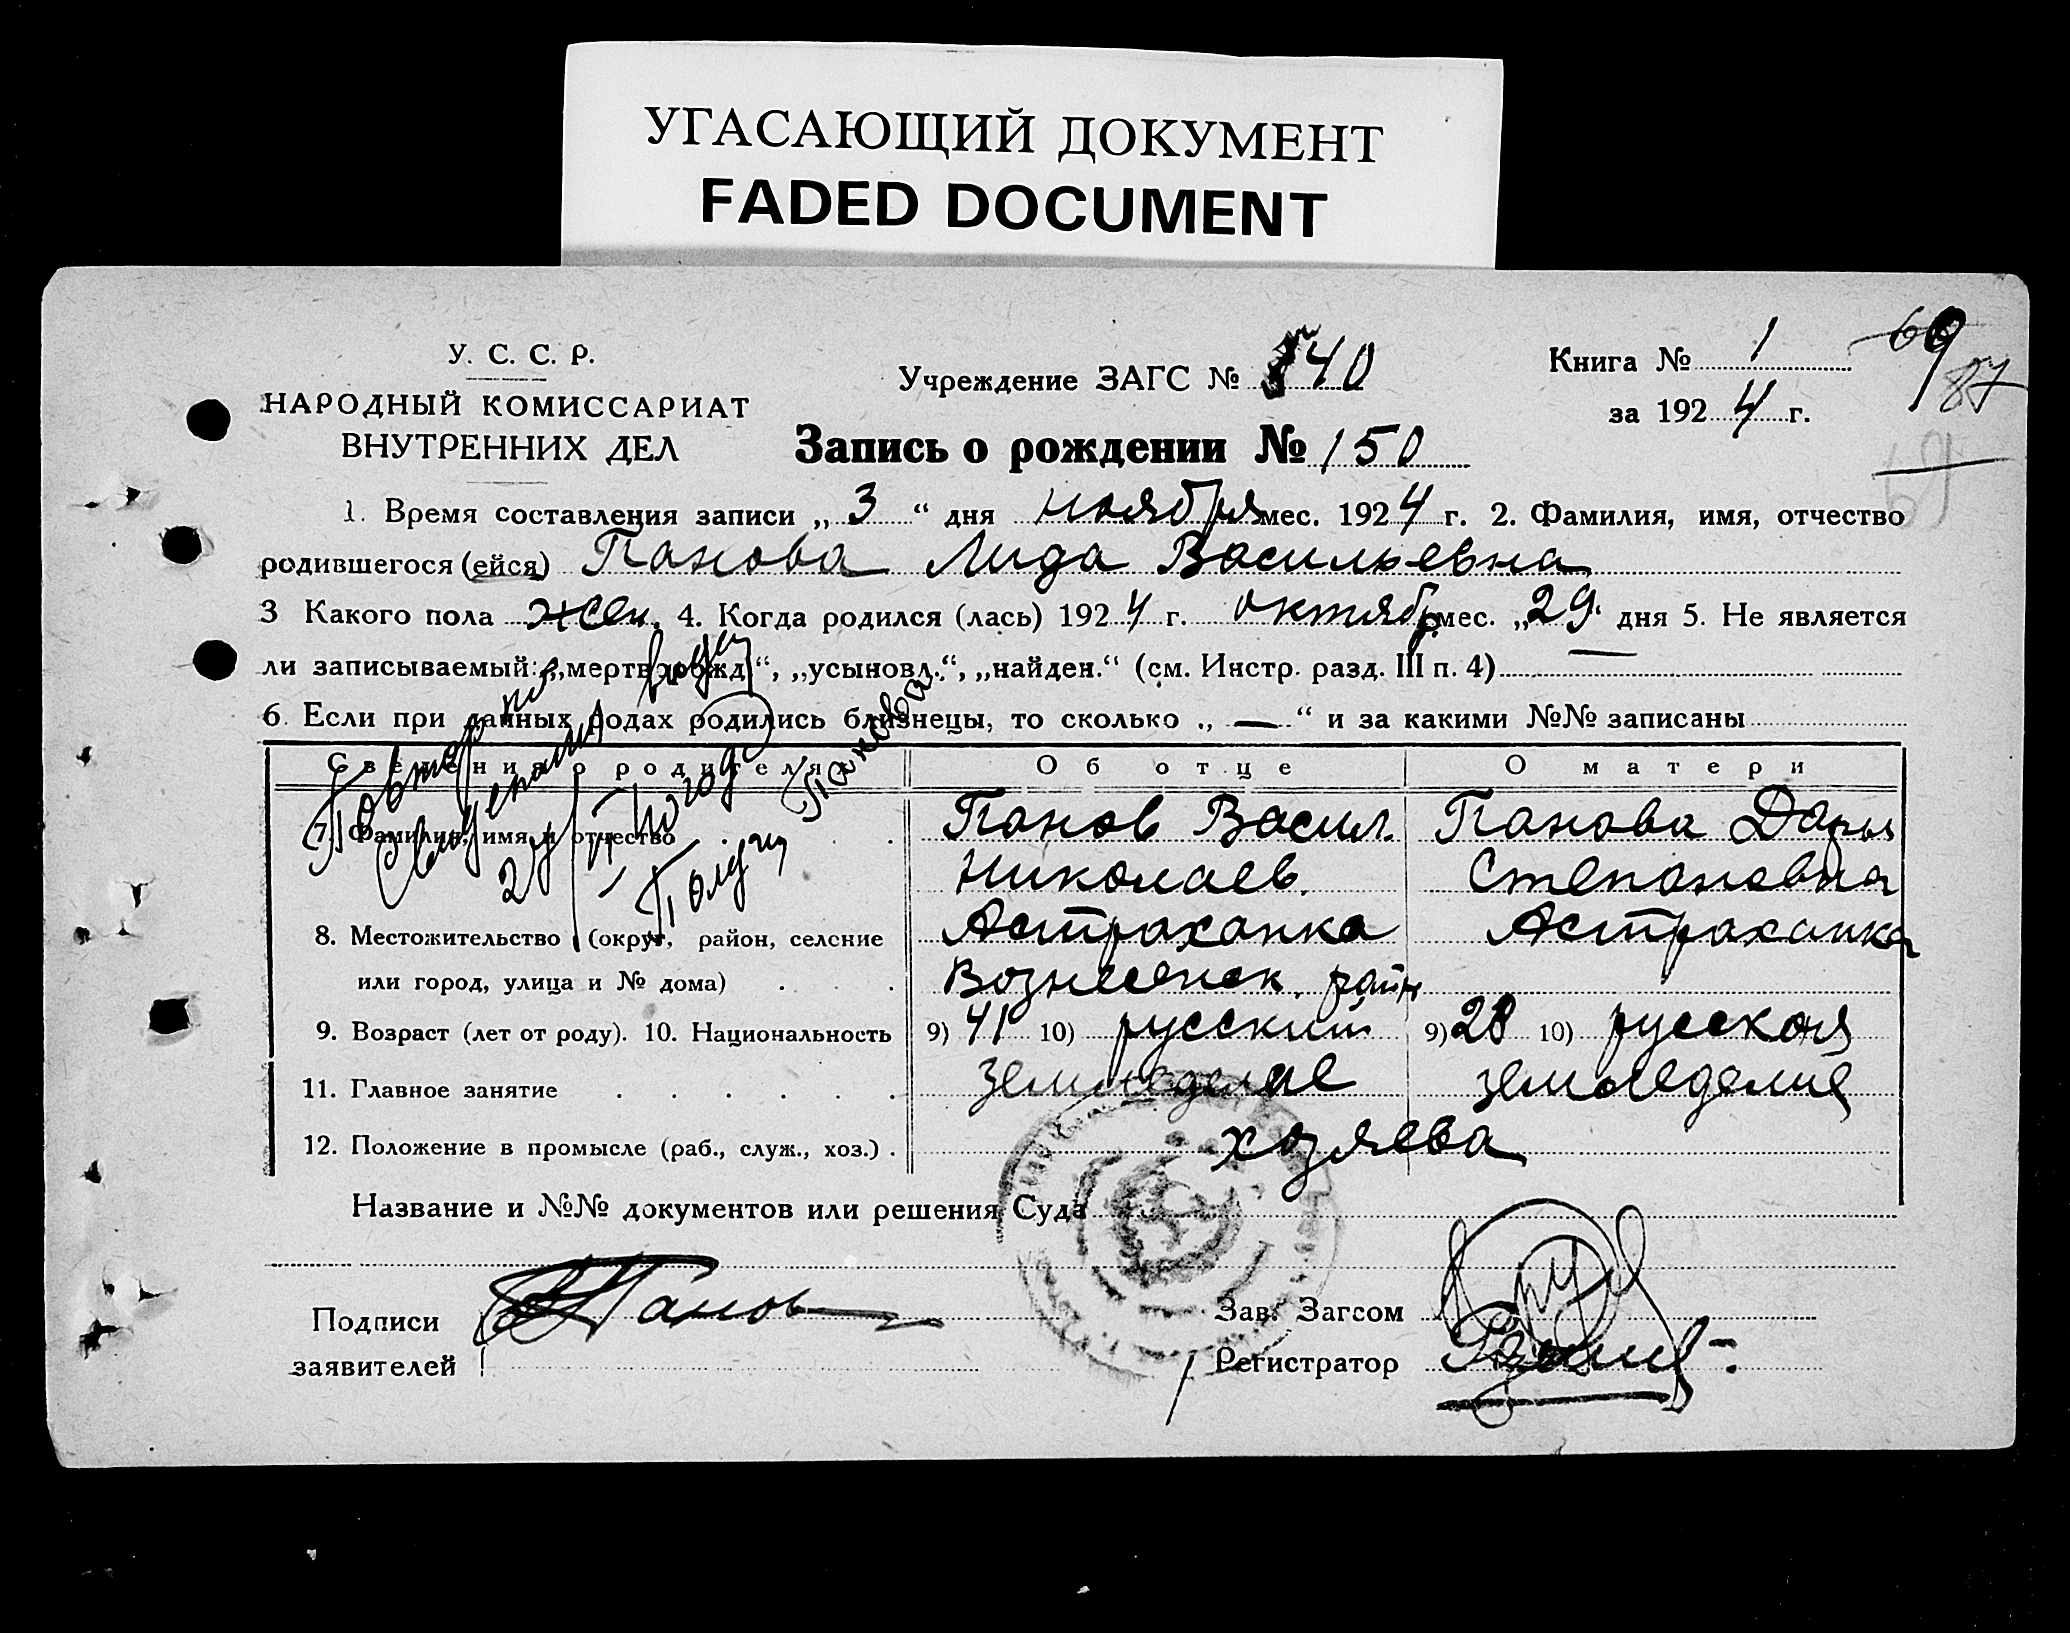 УГАСАЮЩИЙ ДОКУМЕНТ
FADED DOCUMENT
У. С. С. Р.
НАРОДНЫЙ КОМИССАРИАТ
ВНУТРЕННИХ ДЕЛ
Учреждение ЗАГС № 40
Книга № 1
за 1924 г.
69
87
Запись о рождении № 150
1. Время составления записи „3“ дня ноября мес. 1924 г. 2. Фамилия, имя, отчество
родившегося (ейся) Панова Лида Васильевна
3 Какого пола жен. 4. Когда родился (лась) 1924 г. октябр мес. „29. дня 5. Не является
ли записываемый: „мертворожд.“, „усыновл.“, „найден.“ (см. Инстр. разд. III п. 4) —
6. Если при данных родах родились близнецы, то сколько „—“ и за какими №№ записаны
Сведения о родителях
Об отце
О матери
7. Фамилия, имя и отчество
Панов Васил. Панова Дарья
Николаев. Степановна
8. Местожительство (округ, район, селение Астраханка Астраханка
или город, улица и № дома) Вознесенск. район
9. Возраст (лет от роду). 10. Национальность 9) 41 10) русский 9) 28 10) русская
11. Главное занятие земледелие земледелие
12. Положение в промысле (раб., служ., хоз.) хозяева
Название и №№ документов или решения Суда
Подписи
заявителей
Панов
Зав. Загсом
Регистратор